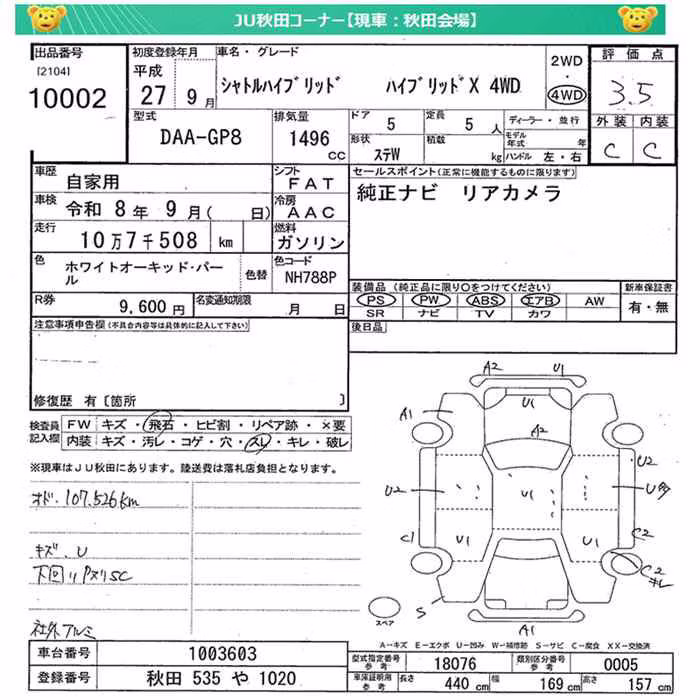 JU秋田コーナー【現車：秋田会場】
出品番号
[2104]
10002
初度登録年月
平成
27 9月
車名・グレード
シャトルハイブリッド ハイブリッドX 4WD
2WD
・
4WD
評価点
3.5
型式
DAA-GP8
排気量
1496
CC
ドア 5
定員 5 人
形状 ステW
積載 kg
ディーラー・並行
モデル年式 年
ハンドル 左・右
外装 内装
C C
車歴 自家用
シフト FAT
車検 令和 8年 9月( 日)
冷房 AAC
走行 10万7千508 km
燃料 ガソリン
色 ホワイトオーキッド・パール
色替
色コード NH788P
R券 9,600円
名変通知期限 月 日
セールスポイント(正常に機能するものに限ります)
純正ナビ リアカメラ
装備品 (純正品に限り○をつけてください)
PS PW ABS エアB AW
SR ナビ TV カワ
新車保証書
有・無
後日品
注意事項申告欄(不具合内容等は具体的に記入して下さい)
修復歴 有[箇所 ]
検査員記入欄
FW キズ・飛石・ヒビ割・リペア跡・×要
内装 キズ・汚レ・コゲ・穴・スレ・キレ・破レ
※現車はJU秋田にあります。陸送費は落札店負担となります。
オド.107.526km
キズ.U
下回リ
社外アルミ
A2 U1
A1 U1
A2
U2
U2 U1 U多
C1 U1 U1 C2
C2
キレ
S
A1
スペア
A-キズ E-エクボ U-凹み W-補修跡 S-サビ C-腐食 XX-交換済
車台番号 1003603
登録番号 秋田 535 や 1020
型式指定番号参考 18076
類別区分番号参考 0005
車庫証明用参考 長さ 440 cm 幅 169 cm 高さ 157 cm